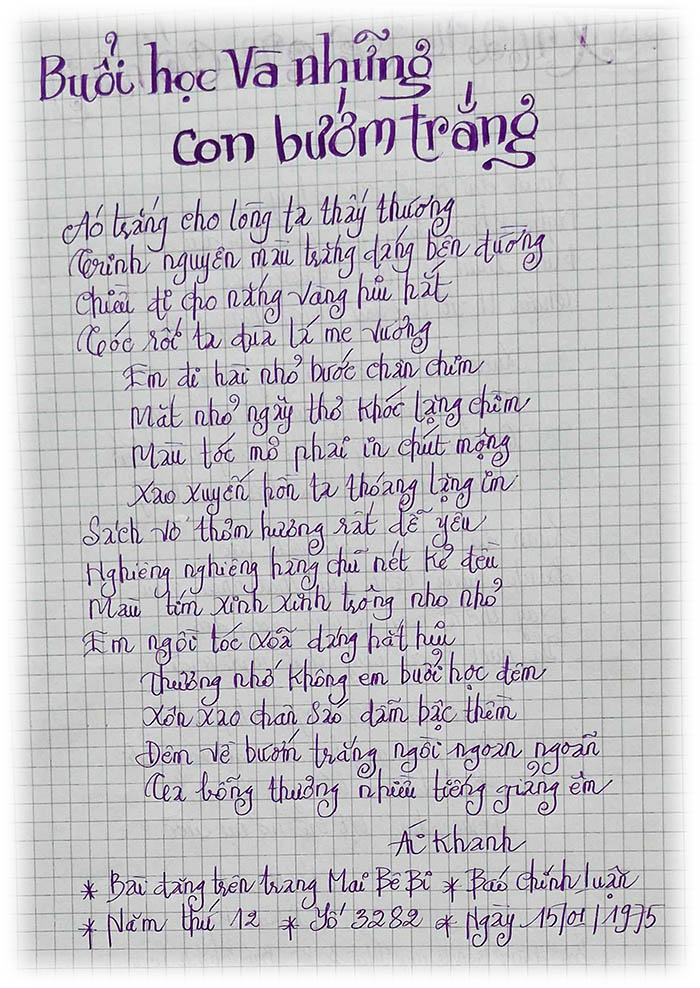 Buổi học Và những
con bướm trắng
Áo trắng cho lòng ta thấy thương
Trinh nguyên màu trắng dáng bên đường
Chiều đi cho nắng vàng hiu hắt
Tóc rối ta đùa lá me vương
Em đi hài nhỏ bước chân chim
Mắt nhỏ ngây thơ khóc lặng chìm
Màu tóc mơ phai in chút mộng
Xao xuyến hồn ta thoáng lặng im
Sách vở thơm hương rất dễ yêu
Nghiêng nghiêng hàng chữ nét kẻ đều
Màu tím xinh xinh trông nho nhỏ
Em ngồi tóc xoã dáng hắt hiu
Thương nhớ không em buổi học đêm
Xôn xao chân sáo dẫm bậc thềm
Đêm về bướm trắng ngồi ngoan ngoãn
Ta bỗng thương nhiều tiếng giảng êm
Ái Khanh
* Bài đăng trên trang Mai Bê Bi * Báo chính luận
* Năm thứ 12 * Số 3282 * Ngày 15/01/1975